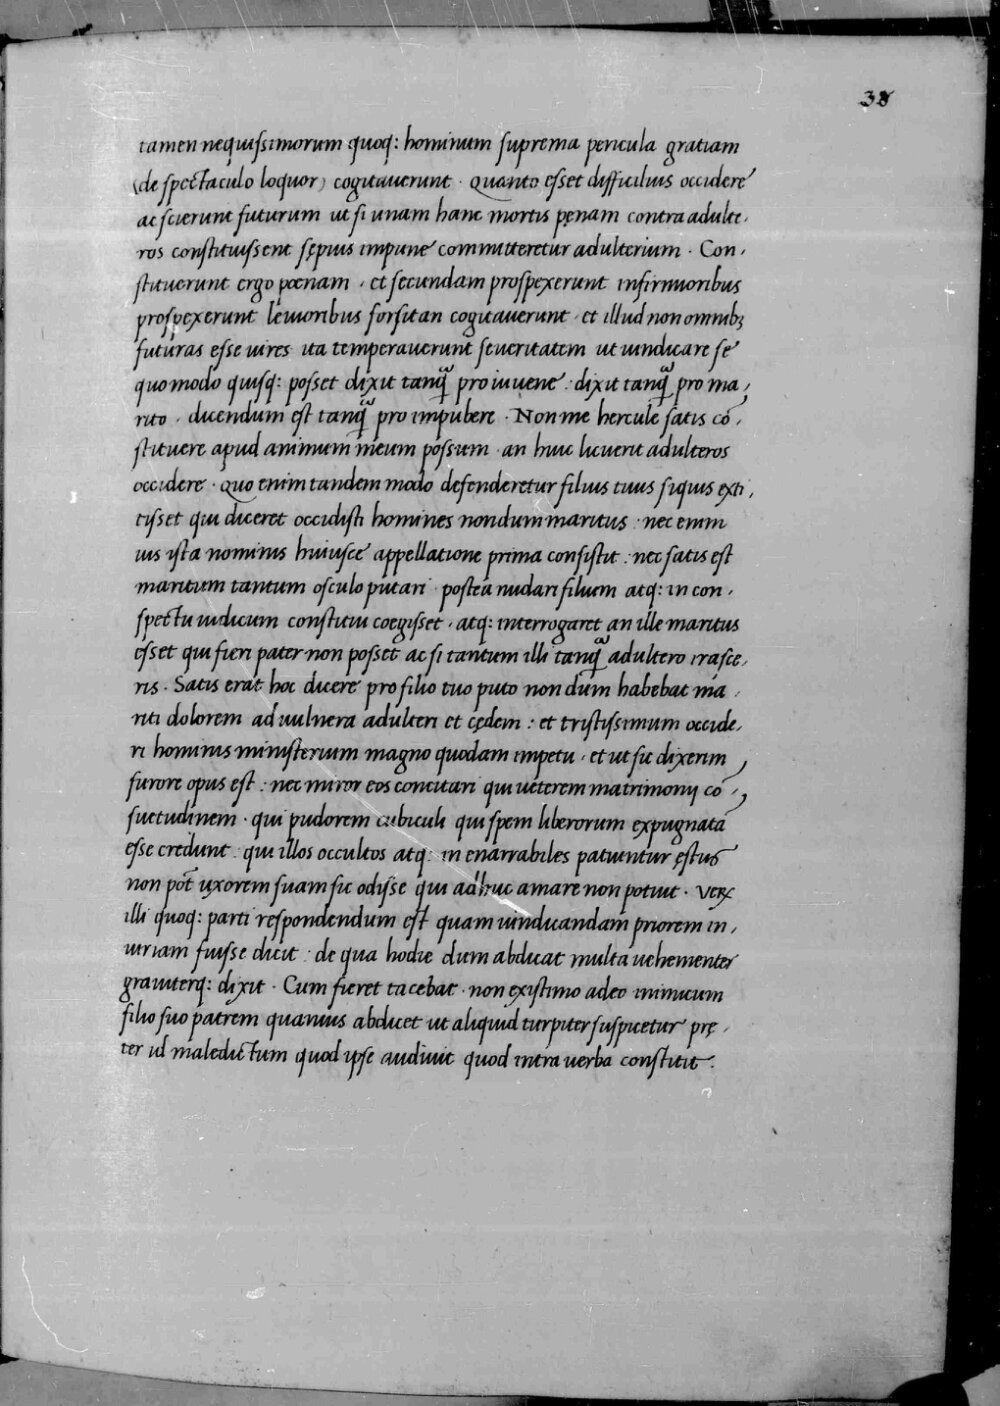 38
tamen nequissimorum quoq: hominum suprema pericula gratiam
(de spectaculo loquor) cogitauerunt · Quanto esset difficilius occidere
ac scierunt futurum ut si unam hanc mortis pęnam contra adulte,
ros constituissent sępius impune committeretur adulterium · Con,
stituerunt ergo pœnam · et secundam prospexerunt infirmioribus
prospexerunt leuioribus forsitan cogitauerunt · et illud non omnibꝫ
futuras esse uires ita temperauerunt seueritatem ut uindicare se
quomodo quisq: posset dixit tanq̃ pro iuuene : dixit tanq̃ pro ma,
rito · dicendum est tanq̃ pro impubere · Non me hercule satis cõ,
stituere apud animum meum possum · an huic licuerit adulteros
occidere · Quo enim tandem modo defenderetur filius tuus siquis exti,
tisset qui diceret occidisti homines nondum maritus : nec enim
ius ista nominis huiusce appellatione prima consistit : nec satis est
maritum tantum osculo putari postea nudari filium atq: in con,
spectu iudicum constitui coegisset · atq: interrogaret an ille maritus
esset qui fieri pater non posset ac si tantum illi tanq̃ adultero irasce,
ris · Satis erat hoc dicere pro filio tuo puto non dum habebat ma,
riti dolorem ad uulnera adulteri et cędem : et tristissimum occide,
ri hominis ministerium magno quodam impetu · et ut sic dixerim
furore opus est : nec miror eos concitari qui ueterem matrimonij cõ,
suetudinem · qui pudorem cubiculi qui spem liberorum expugnatã
esse credunt : qui illos occultos atq: in enarrabiles patiuntur ęstus
non põt uxorem suam sic odisse qui adhuc amare non potuit · Veꝝ
illi quoq: parti respondendum est quam uindicandam priorem in,
iuriam fuisse dicit : de qua hodie dum abdicat multa uehementer
grauiterq: dixit · Cum fieret tacebat · non existimo adeo inimicum
filio suo patrem quamuis abdicet ut aliquid turpiter suspicetur prę,
ter id maledictum quod ipse audiuit quod intra uerba constitit ·